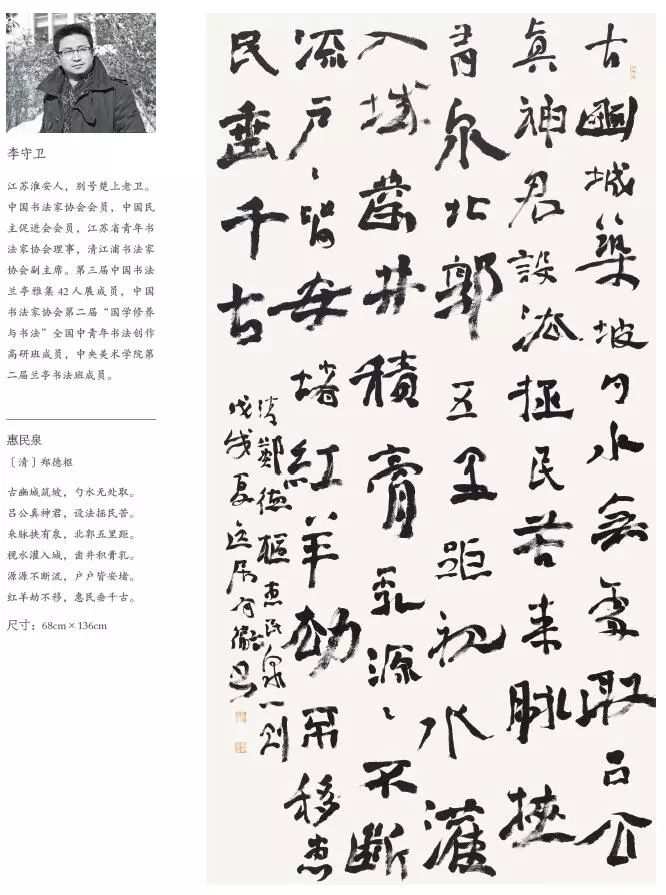 李守卫
江苏淮安人，别号楚上老卫。
中国书法家协会会员，中国民
主促进会会员，江苏省青年书
法家协会理事，清江浦书法家
协会副主席。第三届中国书法
兰亭雅集 42 人展成员，中国
书法家协会第二届“国学修养
与书法”全国中青年书法创作
高研班成员，中央美术学院第
二届兰亭书法班成员。
惠民泉
〔清〕郑德枢
古豳城筑坡，勺水无处取。
吕公真神君，设法拯民苦。
来脉抉有泉，北郭五里距。
枧水灌入城，凿井积膏乳。
源源不断流，户户皆安堵。
红羊劫不移，惠民垂千古。
尺寸：68cm×136cm
古豳城築坡勺水無處取吕公
真神君設法拯民苦来脉挾
有泉北郭五里距枧水灌
入城凿井積膏乳源〻不斷
流户〻皆安堵紅羊劫不移惠
民垂千古
清鄭德樞惠民泉一則
戊戌夏